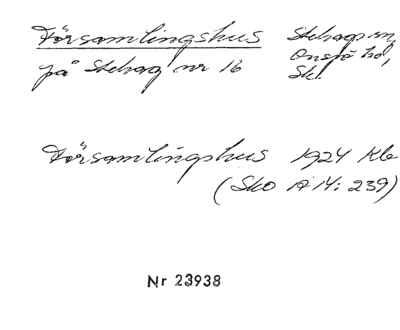 Församlingshus Stehags sn,
på Stehag nr 16 Onsjö hd,
Sk.
Församlingshus 1924 Kle
(Sko A 14: 239)
Nr 23938